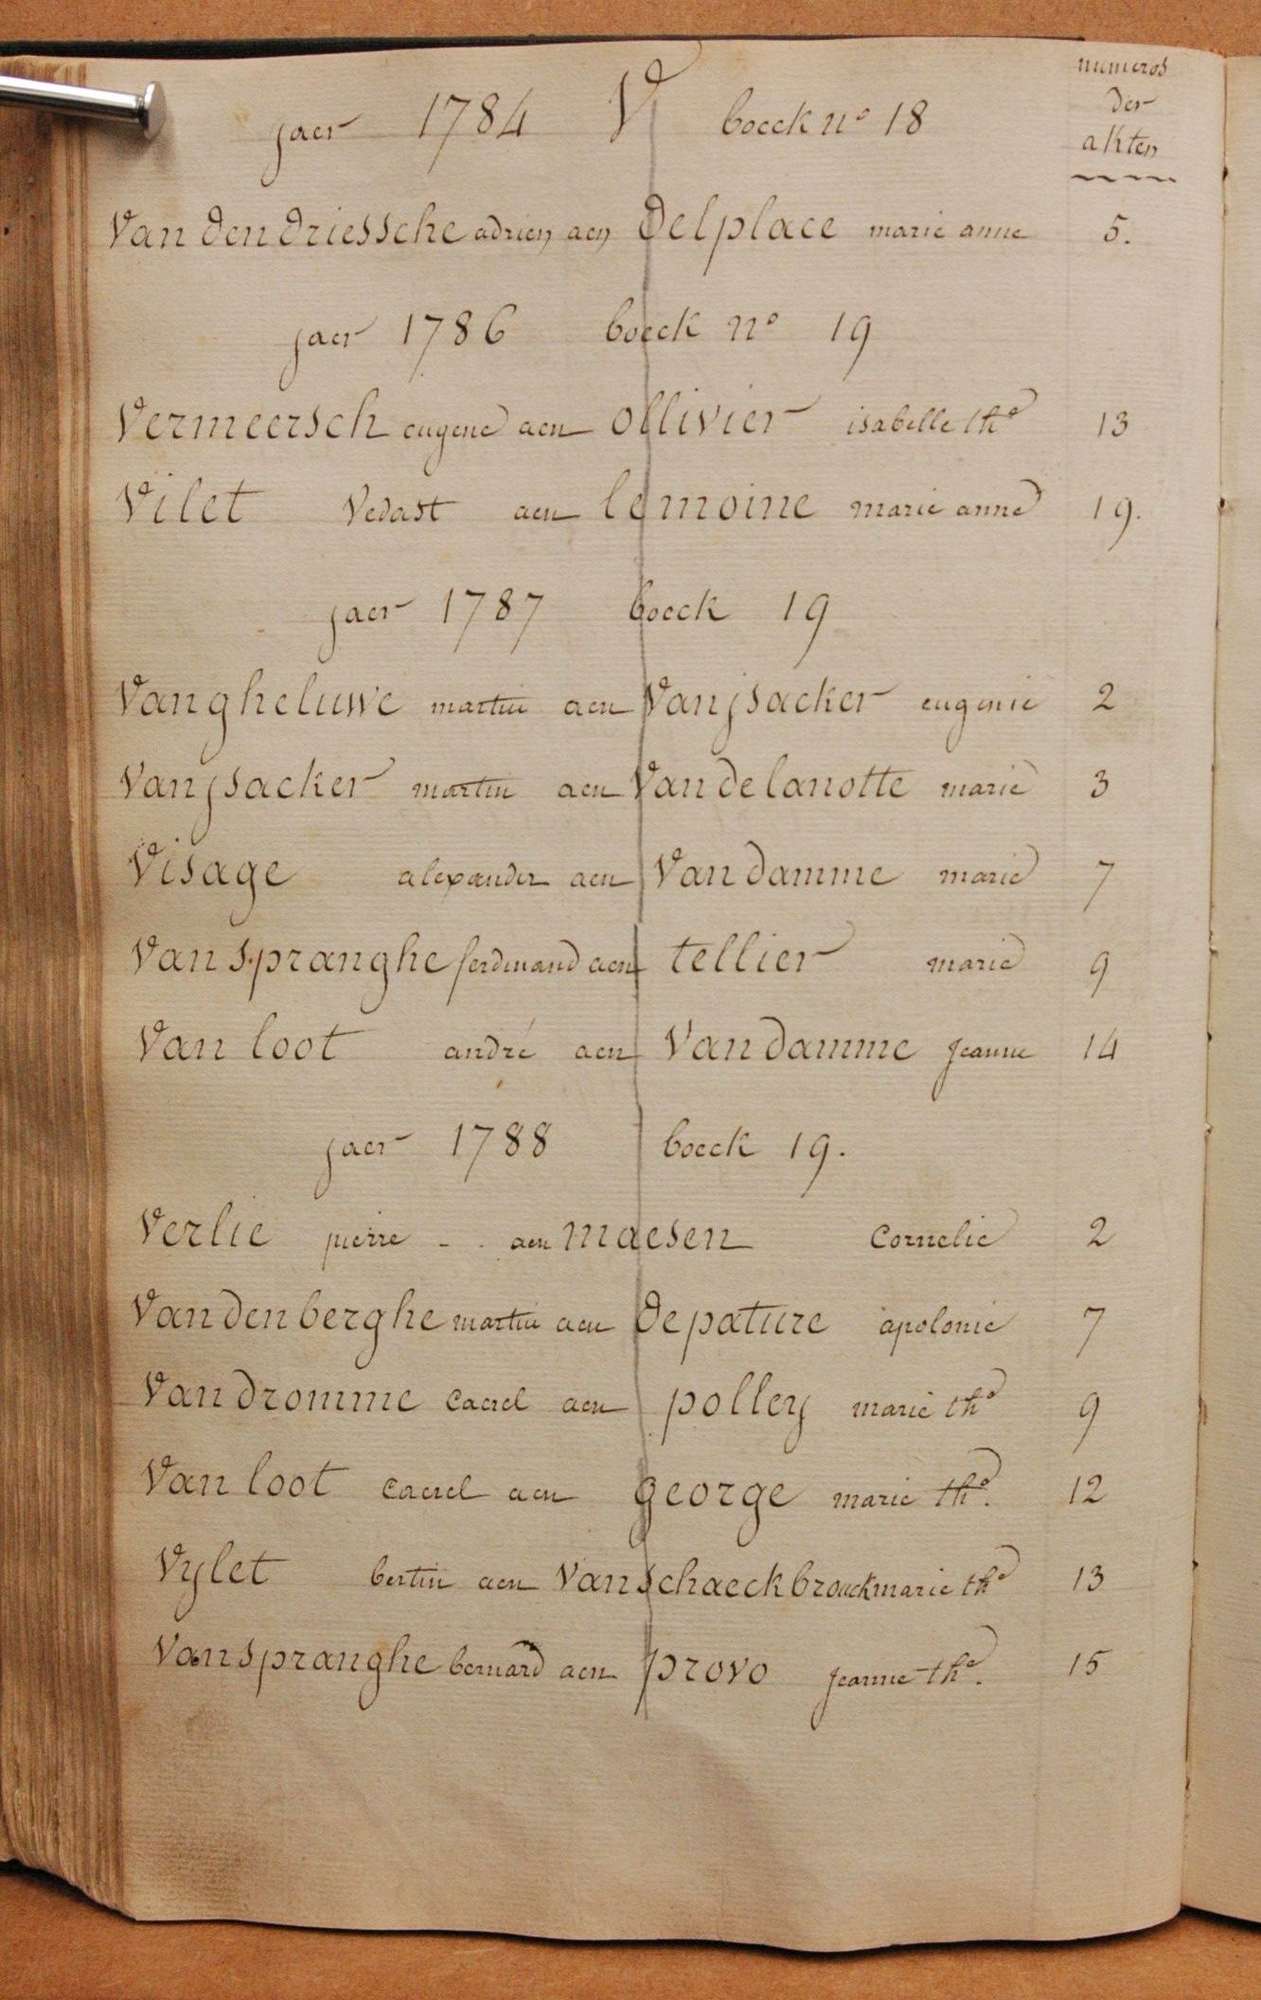 numeros
der
akten
jaer 1784 V boeck n° 18
Van den driessche adrien aen delplace marie anne 5.
jaer 1786 boeck n° 19
Vermeersch eugene aen ollivier isabelle the 13
Vilet Vedast aen lemoine marie anne 19.
jaer 1787 boeck 19
Vangheluwe martin aen Vanjsacker eugenie 2
Vanjsacker martin aen Vandelanotte marie 3
Visage alexander aen Vandamme marie 7
Vanspranghe ferdinand aen tellier marie 9
Van loot andré aen Vandamme Jeanne 14
jaer 1788 boeck 19.
Verlie pierre - - aen maesen Cornelie 2
Vandenberghe martin aen depature apolonie 7
Vandromme Caerel aen polley marie the 9
Van loot Caerel aen george marie the. 12
Vylet bertin aen Vanschaeckbrouck marie the 13
Vanspranghe bernard aen provo Jeanne the. 15